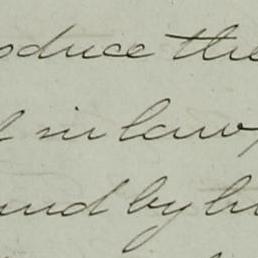 oduce the
in law,
und by h